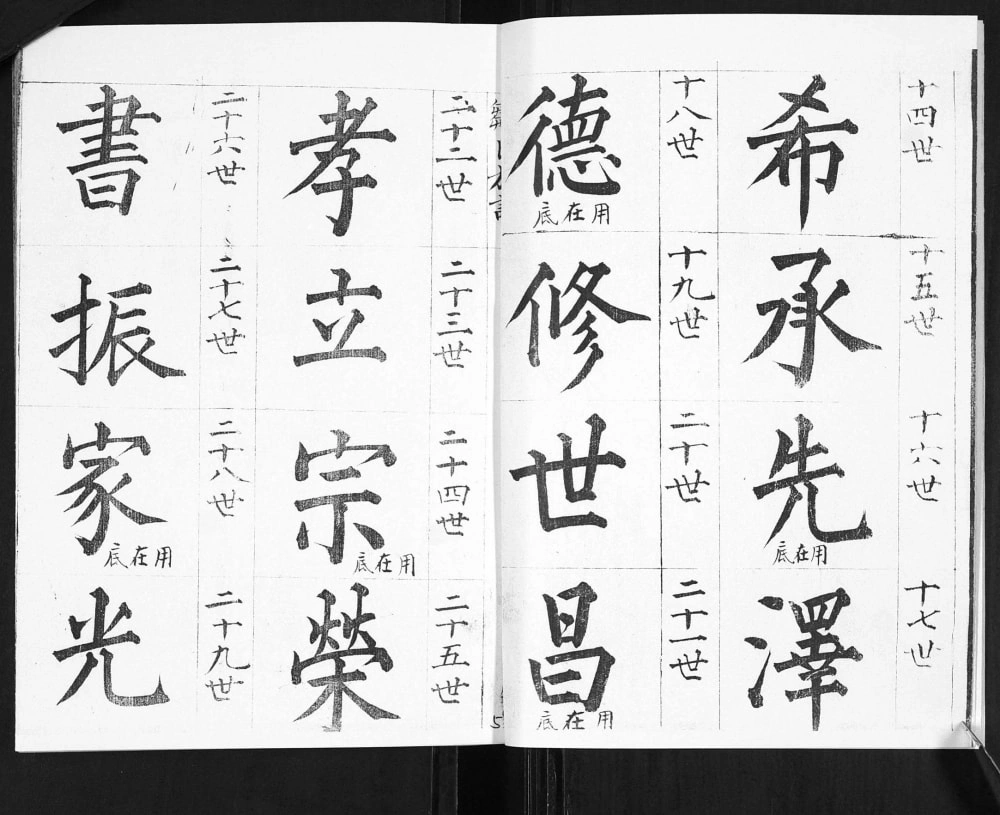 十四世
希
十五世
承
十六世
先
用在底
十七世
澤
十八世
德
用在底
十九世
修
二十世
世
二十一世
昌
用在底
二十二世
孝
二十三世
立
二十四世
宗
用在底
二十五世
榮
二十六世
書
二十七世
振
二十八世
家
用在底
二十九世
光